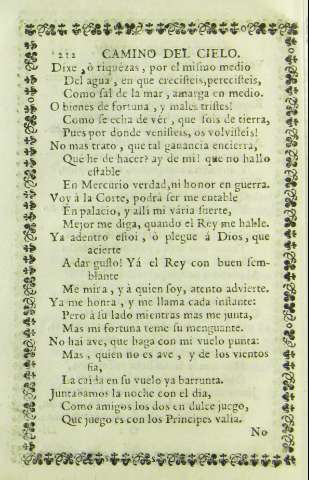 212 CAMINO DEL CIELO.
Dixe, ò riquezas, por el mismo medio
Del agua, en que crecisteis, perecisteis,
Como sal de la mar, amarga en medio.
O bienes de fortuna, y males tristes!
Como se echa de vér, que sois de tierra,
Pues por donde venisteis, os volvisteis!
No mas trato, que tal ganancia encierra,
Què he de hacer? ay de mi! que no hallo
estable
En Mercurio verdad, ni honor en guerra.
Voy à la Corte, podrà ser me entable
En palacio, y alli mi vária suerte,
Mejor me diga, quando el Rey me hable.
Ya adentro estoi, ò plegue á Dios, que
acierte
A dar gusto! Yá el Rey con buen sem-
blante
Me mira, y à quien soy, atento advierte.
Ya me honra, y me llama cada instante:
Pero à su lado mientras mas me junta,
Mas mi fortuna teme su menguante.
No hai ave, que haga con mi vuelo punta:
Mas, quien no es ave, y de los vientos
fia,
La caida en su vuelo ya barrunta.
Juntabamos la noche con el dia,
Como amigos los dos en dulce juego,
Que juego es con los Principes valia.
No